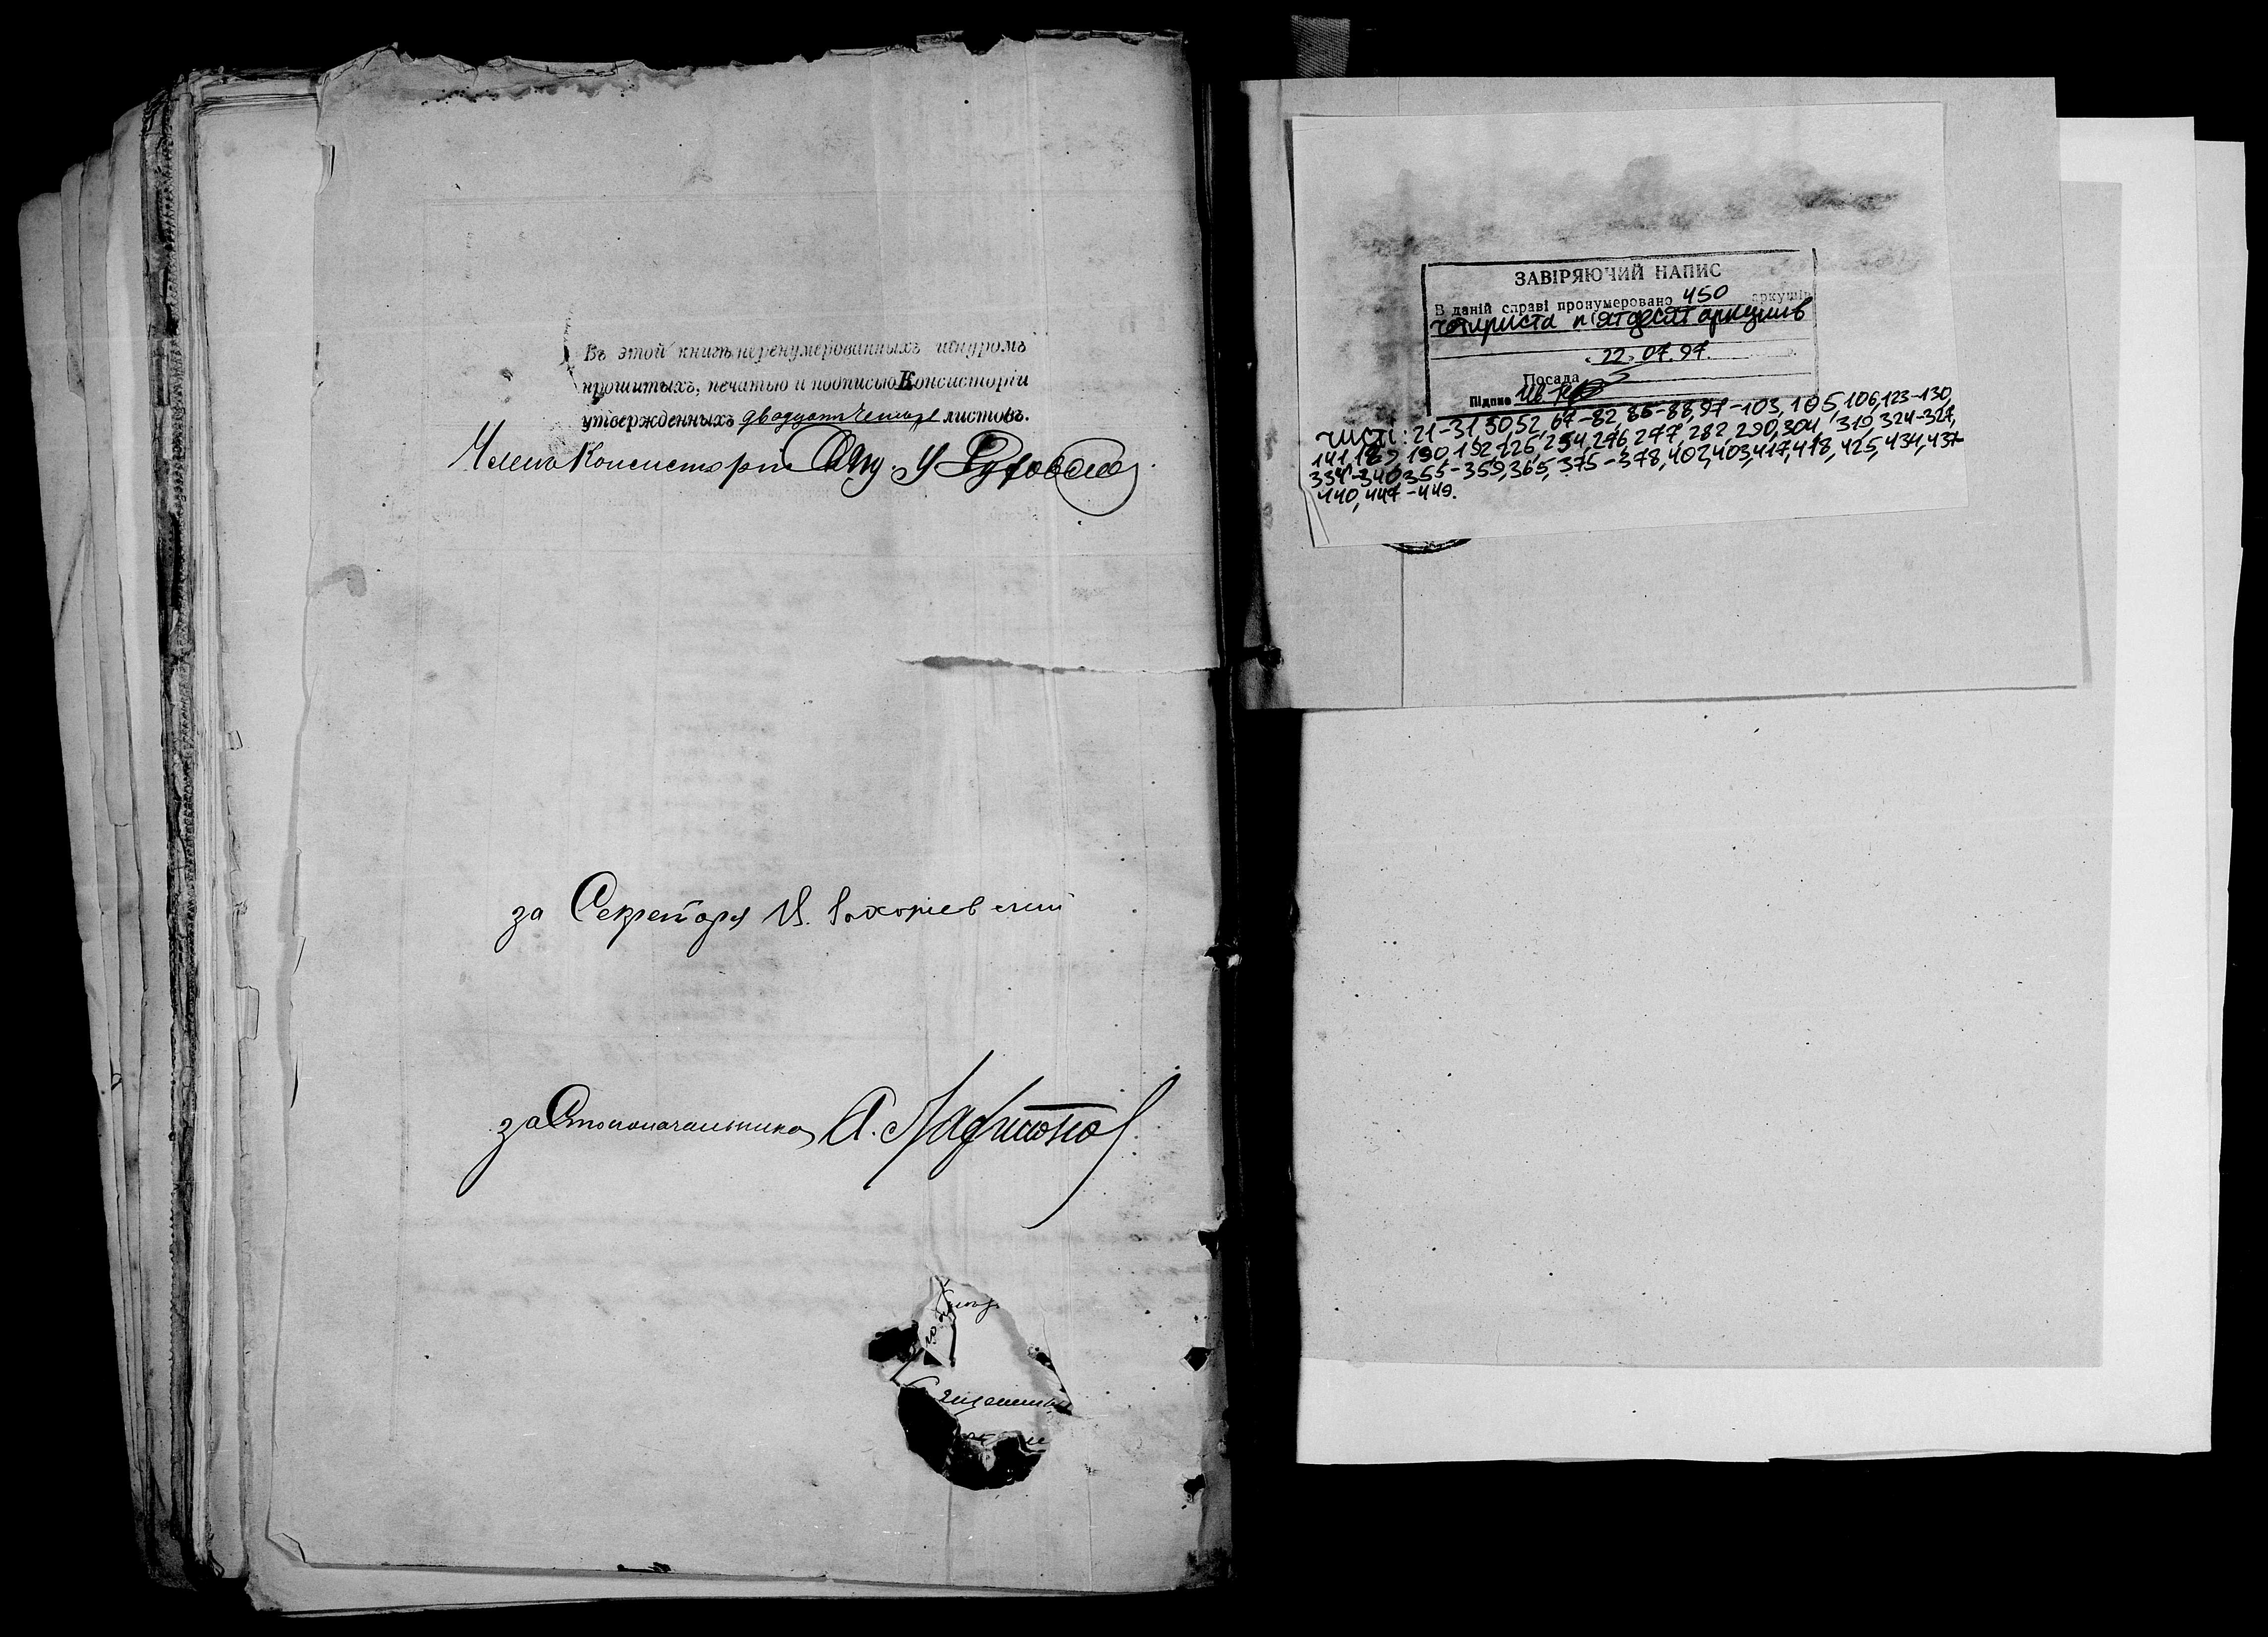 Въ этой книгѣ перенумерованныхъ шнуромъ
прошитыхъ, печатью и подписью Консисторіи
утвержденныхъ двадцать четыре листовъ.
Членъ Консисторіи
за Секретаря
за Столоначальника А.
ЗАВІРЯЮЧИЙ НАПИС
В даній справі пронумеровано 450 аркушів
чотириста п'ятдесят аркушів
22. 07. 97.
Посада
Підпис
чисті: 21-31, 50, 52, 67-82, 86-88, 97-103, 105, 106, 123-130,
141, 189, 190, 192, 226, 254, 276, 277, 282, 290, 304, 319, 324-327,
334-340, 355-359, 365, 375-378, 402, 403, 417, 418, 425, 434, 437
440, 447-449.